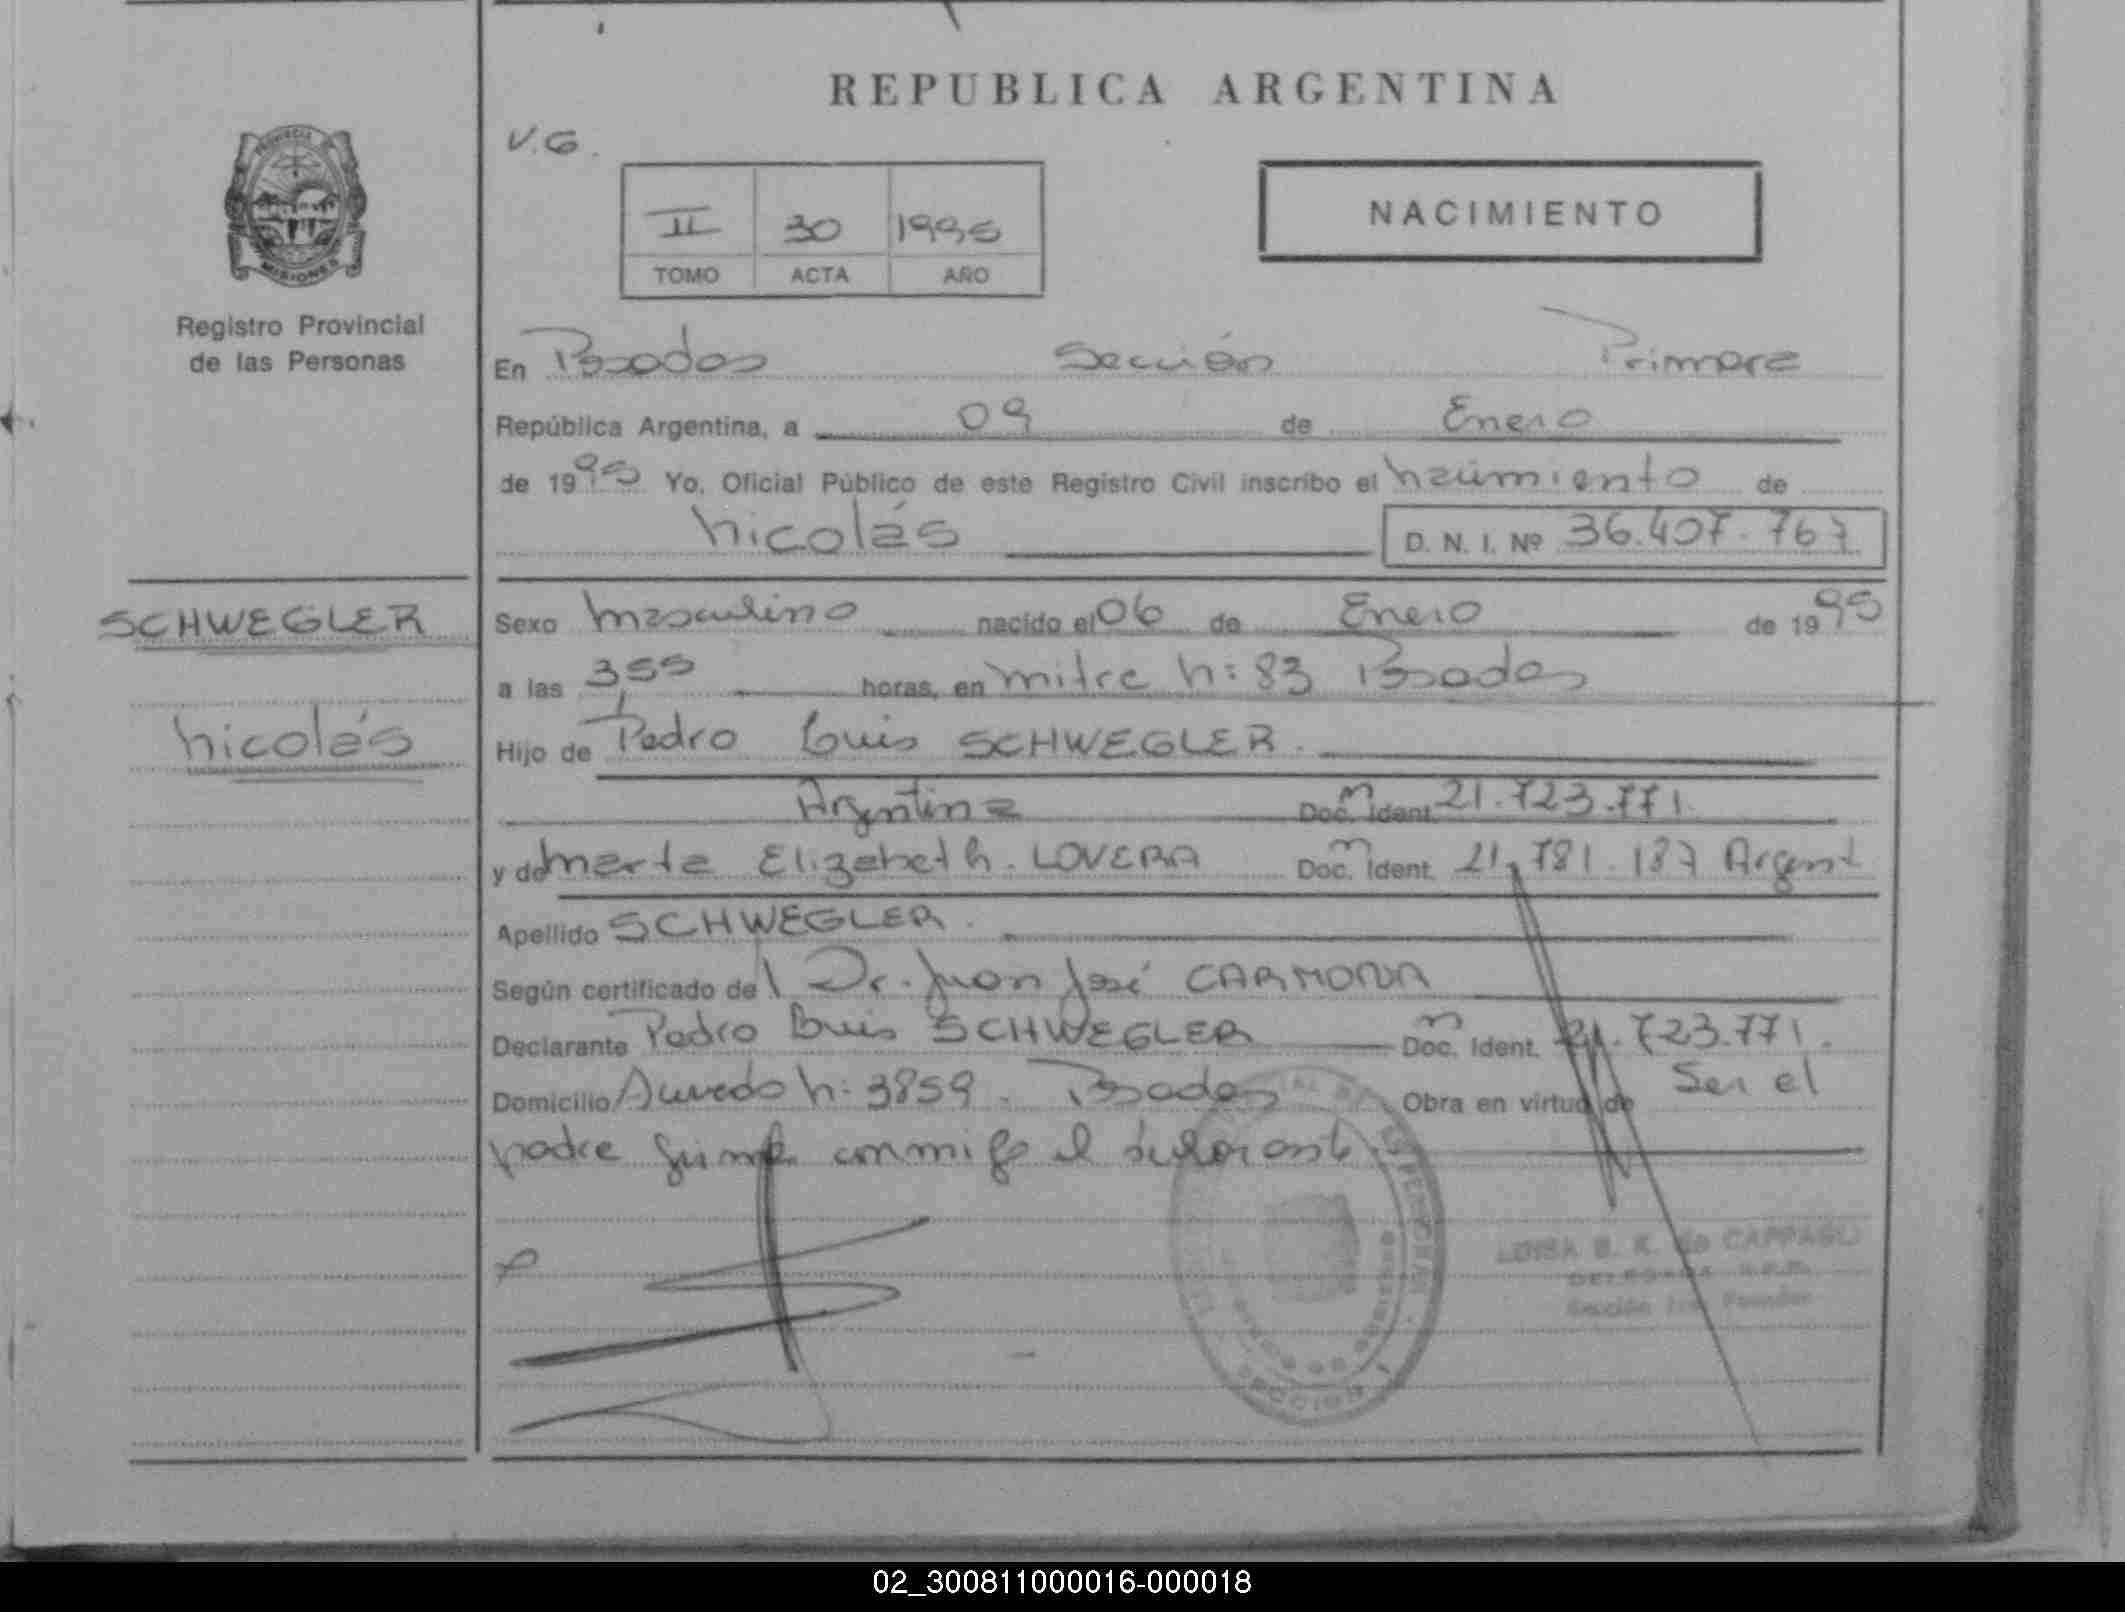 REPUBLICA ARGENTINA
V.G.
PROVINCIA DE
MISIONES
Registro Provincial
de las Personas
II 30 1995
TOMO ACTA AÑO
NACIMIENTO
En Posadas Sección Primera
República Argentina, a 09 de Enero
de 1995 Yo, Oficial Público de este Registro Civil inscribo el nacimiento de
Nicolás D. N. I. Nº 36.407.767
SCHWEGLER
Nicolás
Sexo Masculino nacido el 06 de Enero de 1995
a las 3,55 horas, en Mitre N: 83 Posadas
Hijo de Pedro Luis SCHWEGLER.
Argentina Doc. Ident. 21.723.771.
y de Marta Elizabeth. LOVERA Doc. Ident. 21.781.187 Argent
Apellido SCHWEGLER.
Según certificado del Dr. Juan José CARMONA
Declarante Pedro Luis SCHWEGLER Doc. Ident. 21.723.771.
Domicilio Acevedo N: 3859. Posadas Obra en virtud de Ser el
padre firma conmigo el declarante
LUISA B. K. de CAPPAGLI
DELEGADA R.P.P.
Sección 1ra. Posadas
SECCION 1
02_300811000016-000018